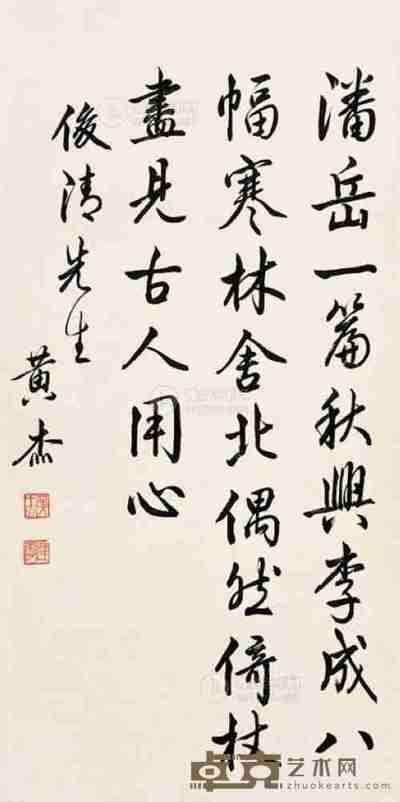 潘岳一篇秋興李成八
幅寒林舍北偶然倚杖
盡見古人用心
俊清先生
黄杰
卓克艺术网
www.zhuokearts.com